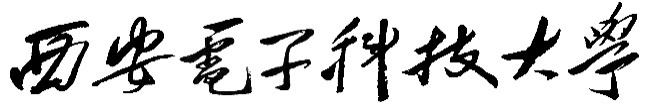 西安電子科技大學